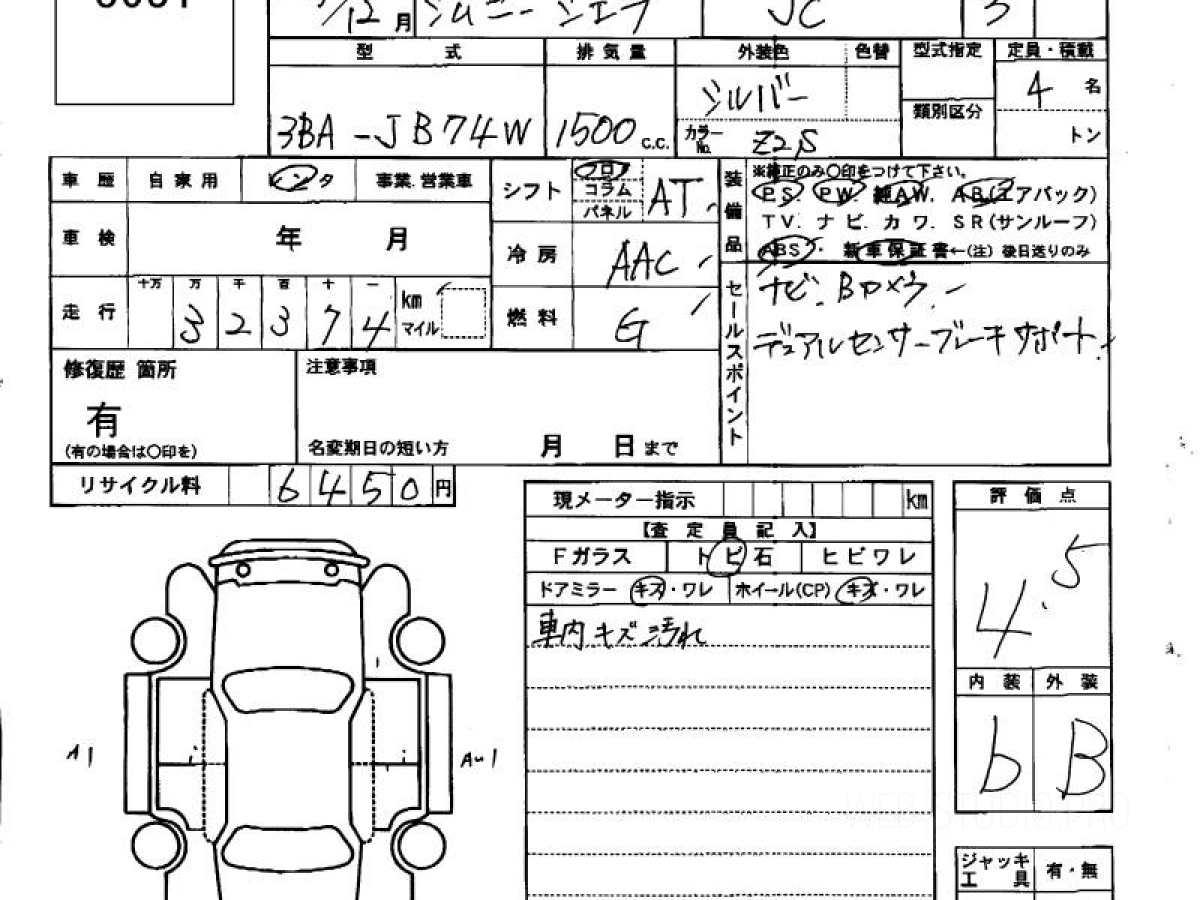 12 月 ジムニー シエラ JC 3
型 式 排気量 外装色 色替 型式指定 定員・積載
シルバー 4 名
類別区分
3BA-JB74W 1500 c.c. カラーNo. Z2S トン
車歴 自家用 レンタ 事業.営業車 シフト フロア コラム パネル AT 装備品 ※純正のみ〇印をつけて下さい。
PS. PW. 純AW. AB(エアバック)
TV. ナビ. カワ. SR(サンルーフ)
車検 年 月 冷房 AAC ABS・ 新車保証書←(注) 後日送りのみ
走行 十万 万 千 百 十 一 km マイル
32374
燃料 G セールスポイント ナビ. Bカメラ.
デュアルセンサーブレーキサポート.
修復歴 箇所 注意事項
有
(有の場合は〇印を) 名変期日の短い方 月 日まで
リサイクル料 6450円
現メーター指示 km 評価点
【査定員記入】 4.5
Fガラス トビ石 ヒビワレ
ドアミラー キズ・ワレ ホイール(CP) キズ・ワレ
車内キズ汚れ
内装 外装
b B
A1 AU1
WEB STUDIO PRO
ジャッキ 工具 有・無